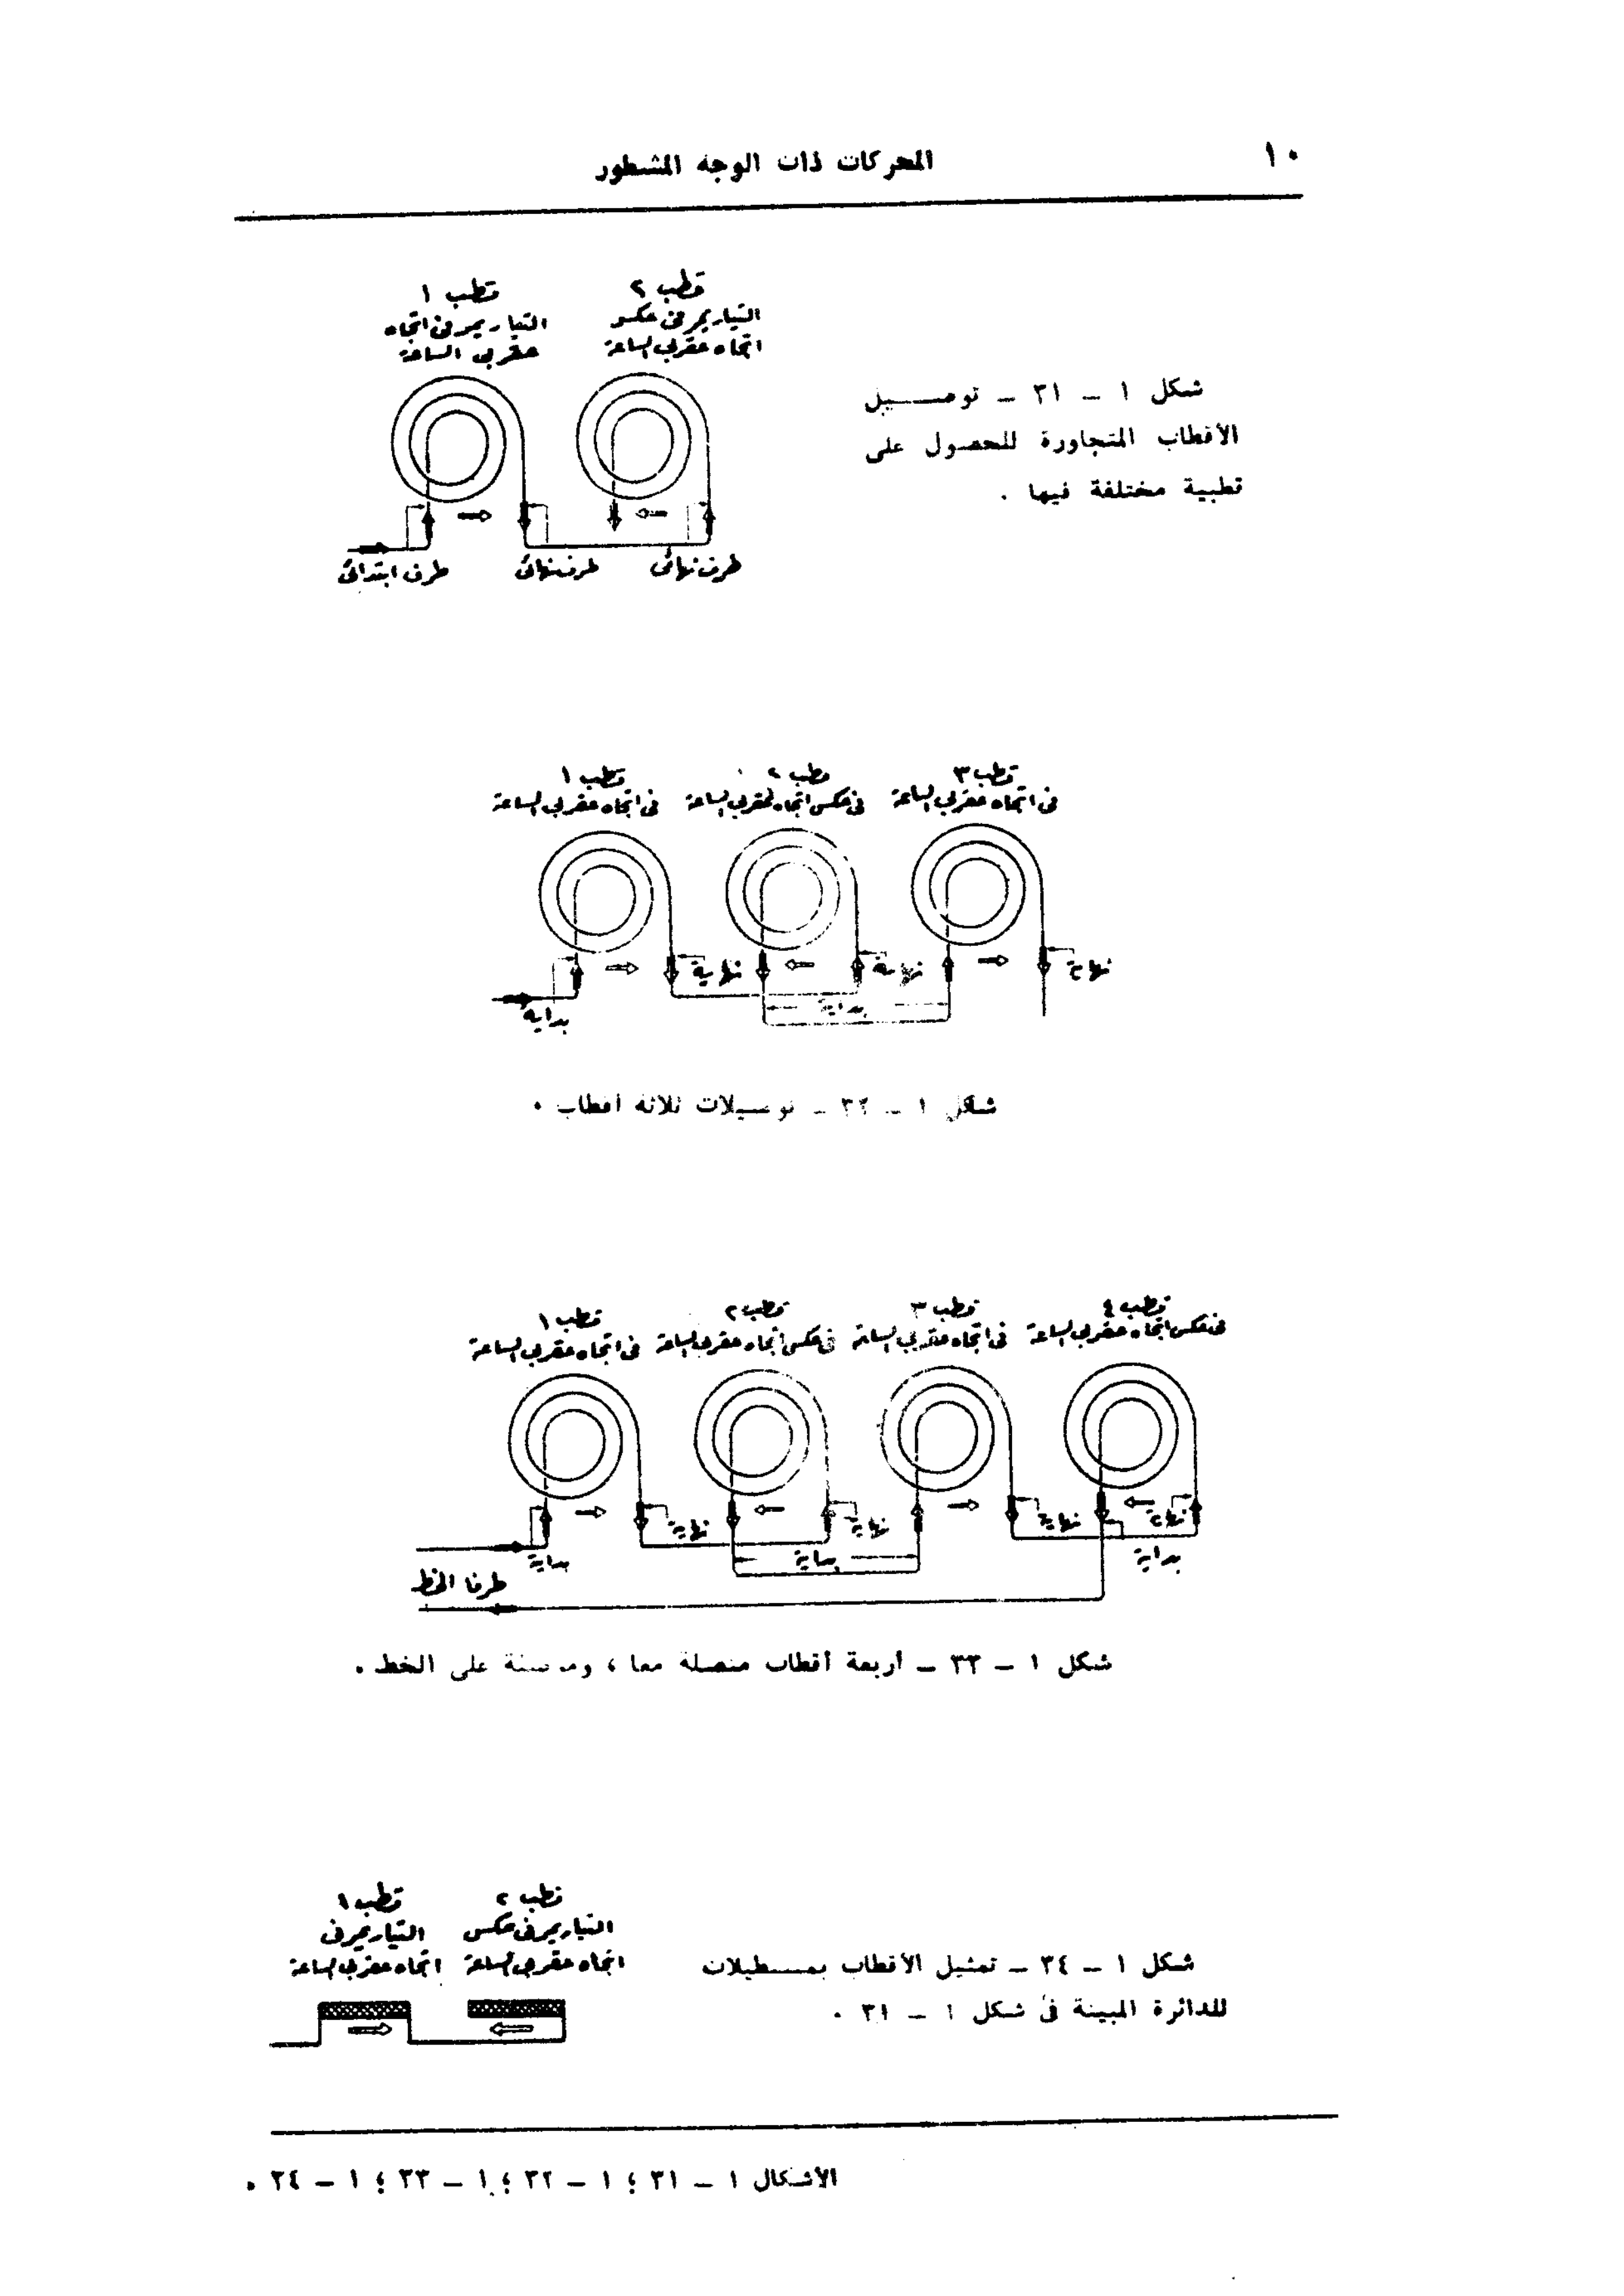 ١٠
المحركات ذات الوجه المشطور
قطب ١
التيار يمر فى اتجاه
عقربى الساعة
قطب ٢
التيار يمر فى عكس
اتجاه عقربى الساعة
طرف ابتدائى
طرف نهائى
طرف نهائى
شكل ١ – ٣١ – توصيل
الأقطاب المتجاورة للحصول على
قطبية مختلفة فيها .
قطب ١
فى اتجاه عقربى الساعة
قطب ٢
فى عكس اتجاه عقربى الساعة
قطب ٣
فى اتجاه عقربى الساعة
بداية
نهاية
نهاية
بداية
نهاية
شكل ١ – ٣٢ – توصيلات ثلاثة أقطاب .
قطب ١
فى اتجاه عقربى الساعة
قطب ٢
فى عكس اتجاه عقربى الساعة
قطب ٣
فى اتجاه عقربى الساعة
قطب ٤
فى عكس اتجاه عقربى الساعة
بداية
نهاية
نهاية
بداية
نهاية
نهاية
بداية
طرفا الخط
شكل ١ – ٣٣ – أربعة أقطاب متصلة معا ، على الخط .
قطب ١
التيار يمر فى
اتجاه عقربى الساعة
قطب ٢
التيار يمر فى عكس
اتجاه عقربى الساعة
شكل ١ – ٣٤ – تمثيل الأقطاب بمستطيلات
للدائرة المبينة فى شكل ١ – ٣١ .
الأشكال ١ – ٣١ ؛ ١ – ٣٢ ؛ ١ – ٣٣ ؛ ١ – ٣٤ .